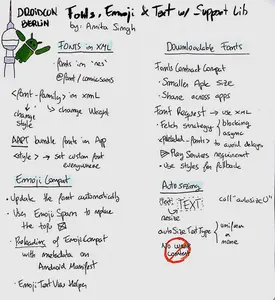 DROIDCON
BERLIN
Fonts, Emoji & Text w/ Support Lib
by: Anita Singh
FONTS in XML
• fonts in 'res'
@font/comicsans
<font-family> in xml
change style
change Weight
bundle fonts in App
<style> → set custom font everywhere
Emoji Compat
• Update the font automatically
• Uses Emoji Spans to replace
the
of EmojiCompat
with metadata on
Android Manifest
• Emoji Text View Helper
Downloadable Fonts
Fonts Contract Compat
• Smaller Apk size
• Share across apps
Font Request → use XML
• Fetch strategy
blocking
async
to avoid delays
Play Services requirement
• Use styles for fallback
Autosizing
TEXT
resize
call "autosize()"
autoSizeTextType
uniform
or
none
No wrap
content